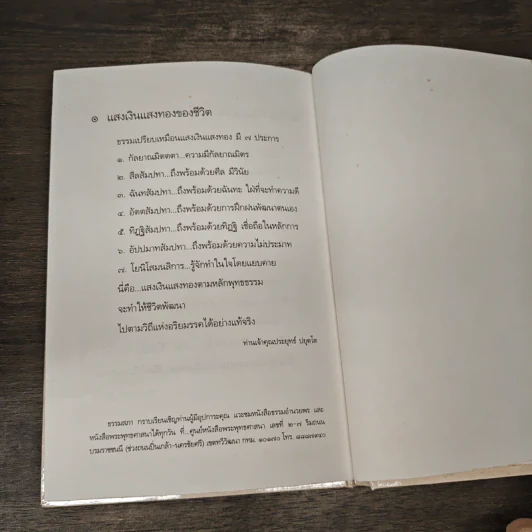 ๏ แสงเงินแสงทองของชีวิต
ธรรมเปรียบเหมือนแสงเงินแสงทอง มี ๗ ประการ
๑. กัลยาณมิตตตา...ความมีกัลยาณมิตร
๒. สีลสัมปทา...ถึงพร้อมด้วยศีล มีวินัย
๓. ฉันทสัมปทา...ถึงพร้อมด้วยฉันทะ ใฝ่ที่จะทำความดี
๔. อัตตสัมปทา...ถึงพร้อมด้วยการฝึกฝนพัฒนาตนเอง
๕. ทิฏฐิสัมปทา...ถึงพร้อมด้วยทิฏฐิ เชื่อถือในหลักการ
๖. อัปปมาทสัมปทา...ถึงพร้อมด้วยความไม่ประมาท
๗. โยนิโสมนสิการ...รู้จักทำในใจโดยแยบคาย
นี่คือ...แสงเงินแสงทองตามหลักพุทธธรรม
จะทำให้ชีวิตพัฒนา
ไปตามวิถีแห่งอริยมรรคได้อย่างแท้จริง
ท่านเจ้าคุณประยุทธ์ ปยุตฺโต
ธรรมสภา กราบเรียนเชิญท่านผู้มีอุปการะคุณ แวะชมหนังสือธรรมอำนวยพร และ
หนังสือพระพุทธศาสนาได้ทุกวัน ที่...ศูนย์หนังสือพระพุทธศาสนา เลขที่ ๒-๗ ริมถนน
บรมราชชนนี (ช่วงถนนปิ่นเกล้า-นครชัยศรี) เขตทวีวัฒนา กทม. ๑๐๑๗๐ โทร.